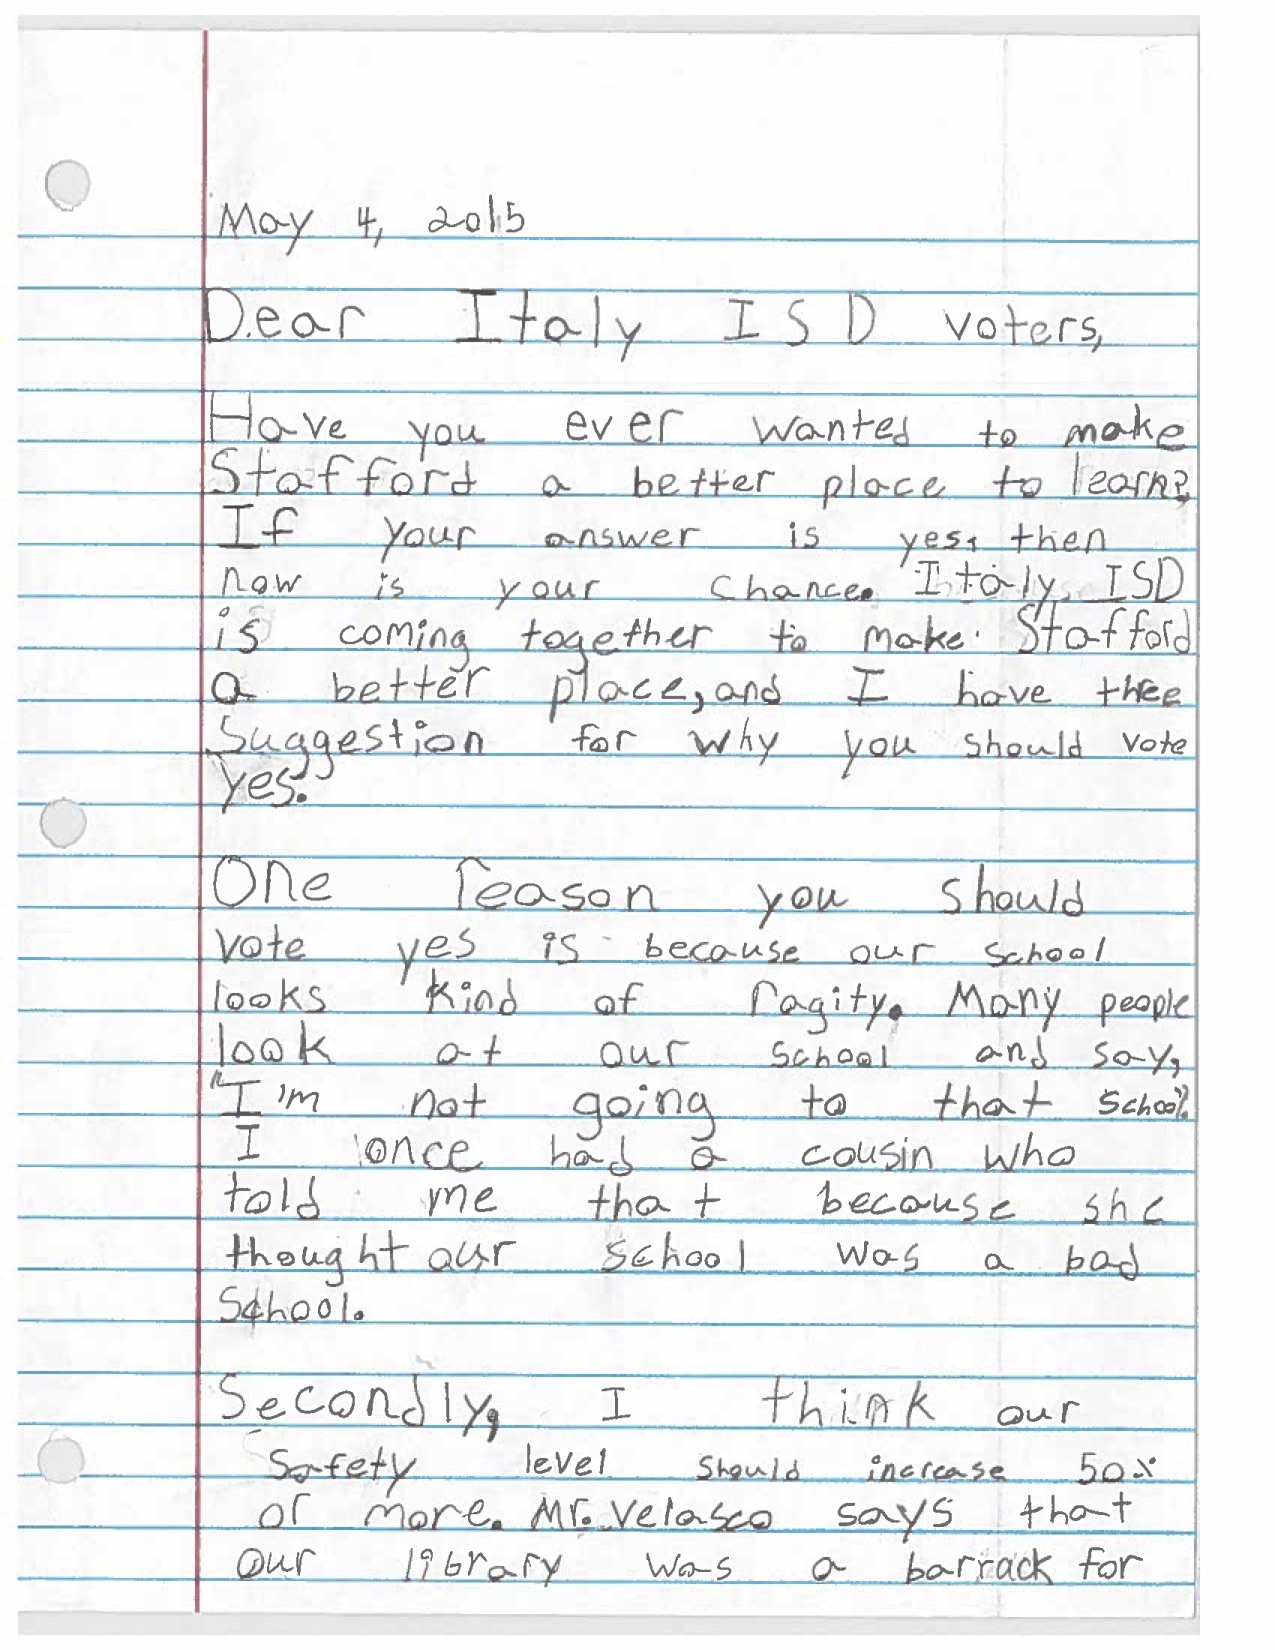 May 4, 2015
Dear Italy ISD voters,
Have you ever wanted to make
Stafford a better place to learn?
If your answer is yes, then
now is your chance. Italy ISD
is coming together to make Stafford
a better place, and I have three
Suggestion for why you should vote
yes.
One reason you should
vote yes is because our school
looks kind of ragity. Many people
look at our school and say,
"I'm not going to that school".
I once had a cousin who
told me that because she
thought our school was a bad
School.
Secondly, I think our
Safety level should increase 50%
or more. Mr. Velasco says that
our library was a barrack for